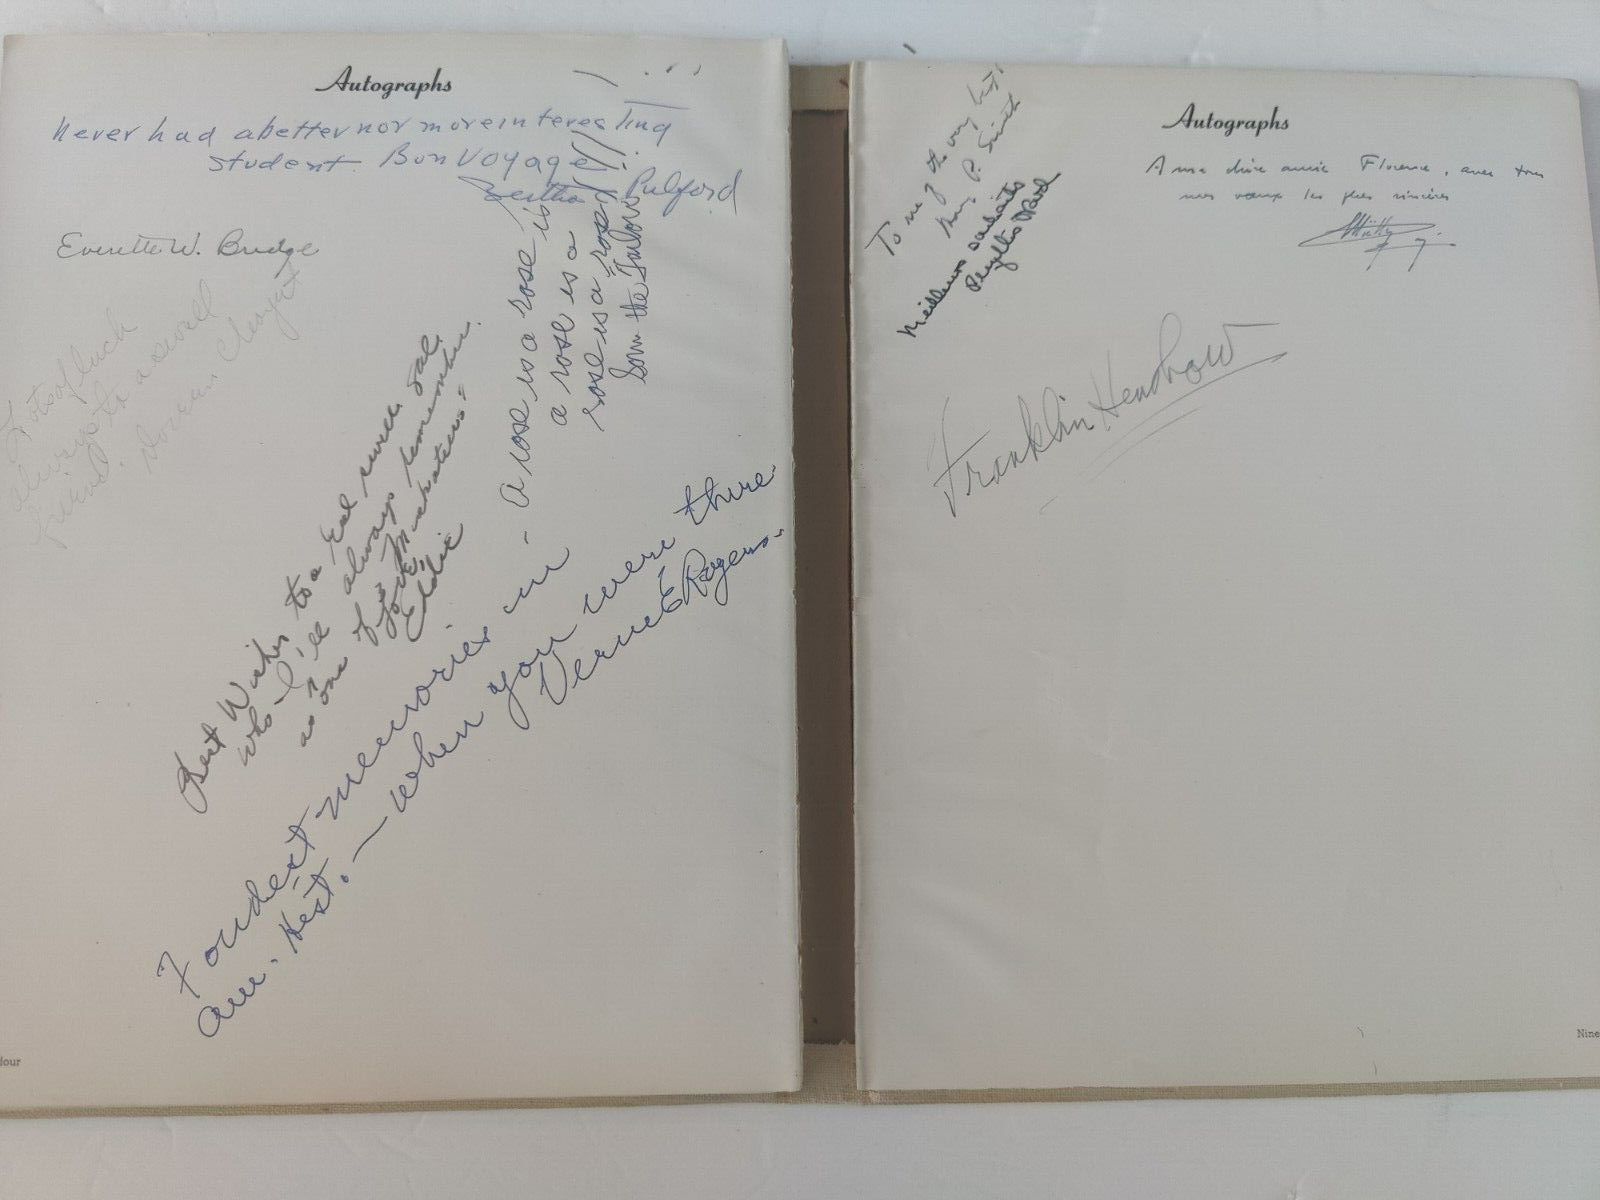 Autographs
Never had a better nor more interesting
student. Bon Voyage!!
Bertha Pulford
Everette W. Budge
Lots of luck
always to a swell
friend.
- A rose is a rose is
a rose is a
rose is a rose
Best Wishes to a real swell gal
who - I'll always remember
as one of
Love,
Eddie
Fondest memories in
am. Hist. — when you were there
Verne E Rogers.
four
Autographs
To one of the very best
P. Smith
Meilleurs souhaits
Phyllis Ward
A ma chère amie Florence, avec tous
mes voeux les plus sincères
Franklin
Nine